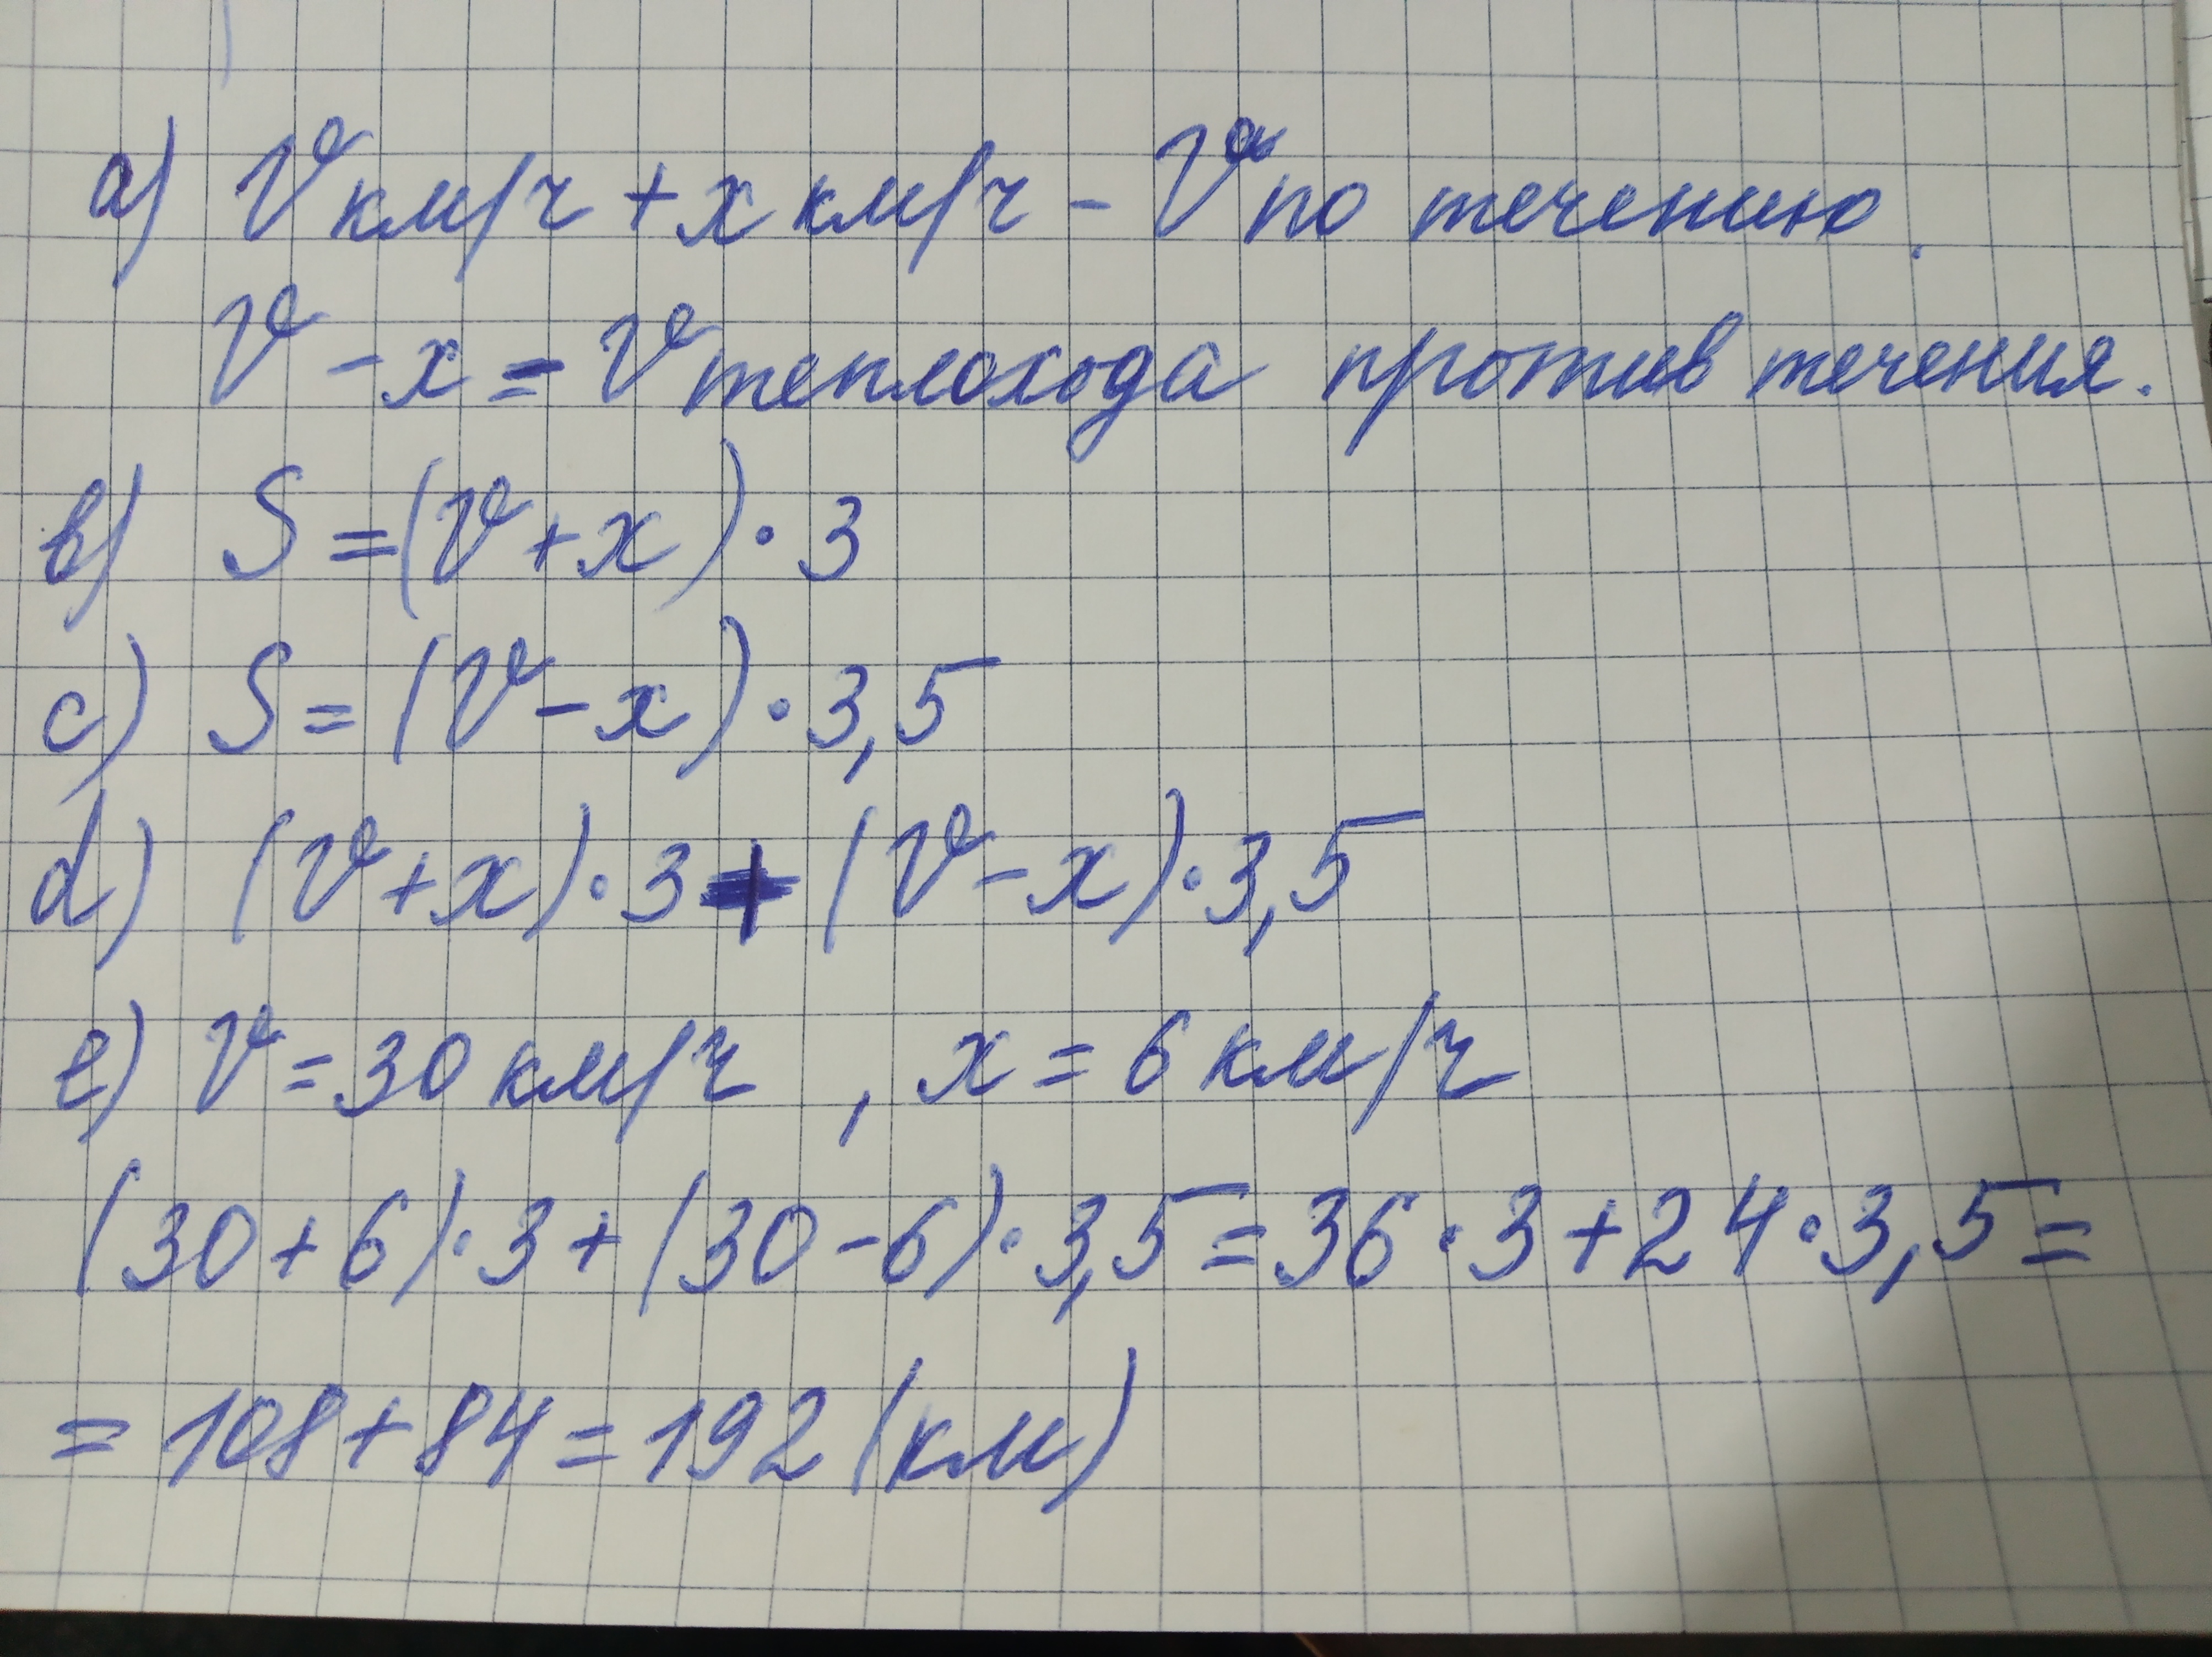 a) v км/ч + x км/ч - v по течению.
v - x = v теплохода против течения.
в) S = (v + x) · 3
c) S = (v - x) · 3,5
d) (v + x) · 3 + (v - x) · 3,5
e) v = 30 км/ч , x = 6 км/ч
(30 + 6) · 3 + (30 - 6) · 3,5 = 36 · 3 + 24 · 3,5 =
= 108 + 84 = 192 (км)